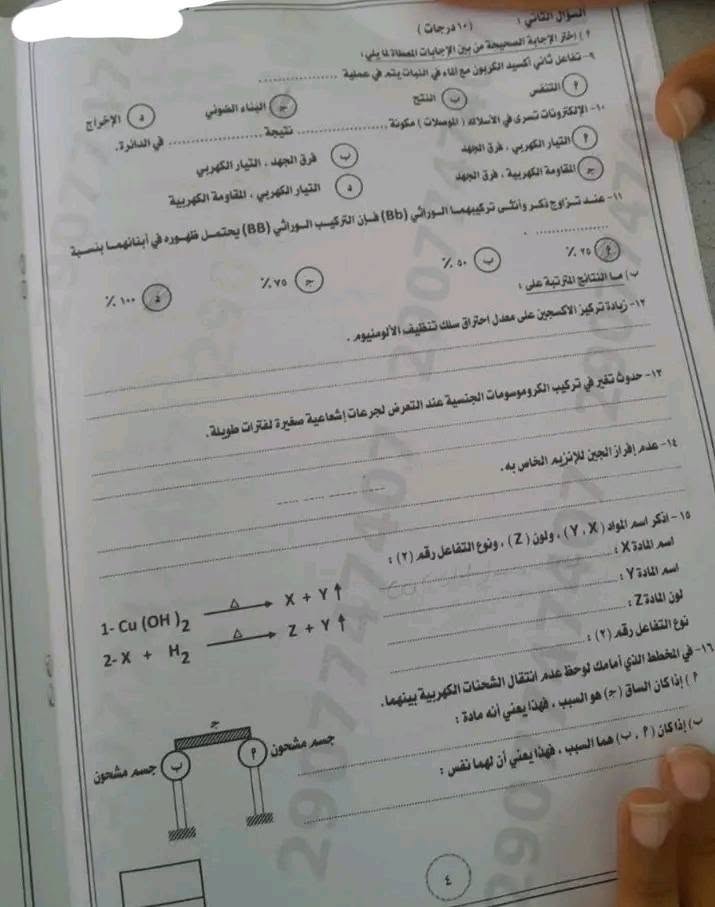 السؤال الثاني : (١٠ درجات)
أ ) إختر الإجابة الصحيحة من بين الإجابات المعطاة لما يلي :
٩- تفاعل ثاني أكسيد الكربون مع الماء في النبات يتم في عملية ....................
أ التنفس ب النتح ج البناء الضوئي د الإخراج
١٠- الإلكترونات تسرى في الأسلاك ( الموصلات ) مكونة .................... نتيجة .................... في الدائرة .
أ التيار الكهربي ، فرق الجهد ب فرق الجهد ، التيار الكهربي
ج المقاومة الكهربية ، فرق الجهد د التيار الكهربي ، المقاومة الكهربية
١١- عند تزاوج ذكر وأنثى تركيبهما الوراثي (Bb) فإن التركيب الوراثي (BB) يحتمل ظهوره في أبنائهما بنسبة
.................... .
أ ٢٥ ٪ ب ٥٠ ٪ ج ٧٥ ٪ د ١٠٠ ٪
ب ) ما النتائج المترتبة على :
١٢- زيادة تركيز الأكسجين على معدل احتراق سلك تنظيف الألومنيوم .
١٣- حدوث تغير في تركيب الكروموسومات الجنسية عند التعرض لجرعات إشعاعية صغيرة لفترات طويلة .
١٤- عدم إفراز الجين للإنزيم الخاص به .
١٥- اذكر اسم المواد ( X ، Y ) ، ولون ( Z ) ، ونوع التفاعل رقم (٢) :
اسم المادة X :
اسم المادة Y :
لون المادة Z :
نوع التفاعل رقم (٢) :
1- Cu (OH)2 —Δ→ X + Y ↑
2- X + H2 —Δ→ Z + Y ↑
١٦- في المخطط الذي أمامك لوحظ عدم انتقال الشحنات الكهربية بينهما .
أ ) إذا كان الساق (ج) هو السبب ، فهذا يعني أنه مادة :
ب ) إذا كان ( أ ، ب ) هما السبب ، فهذا يعني أن لهما نفس :
ج
جسم مشحون أ
ب جسم مشحون
٤
2907747407